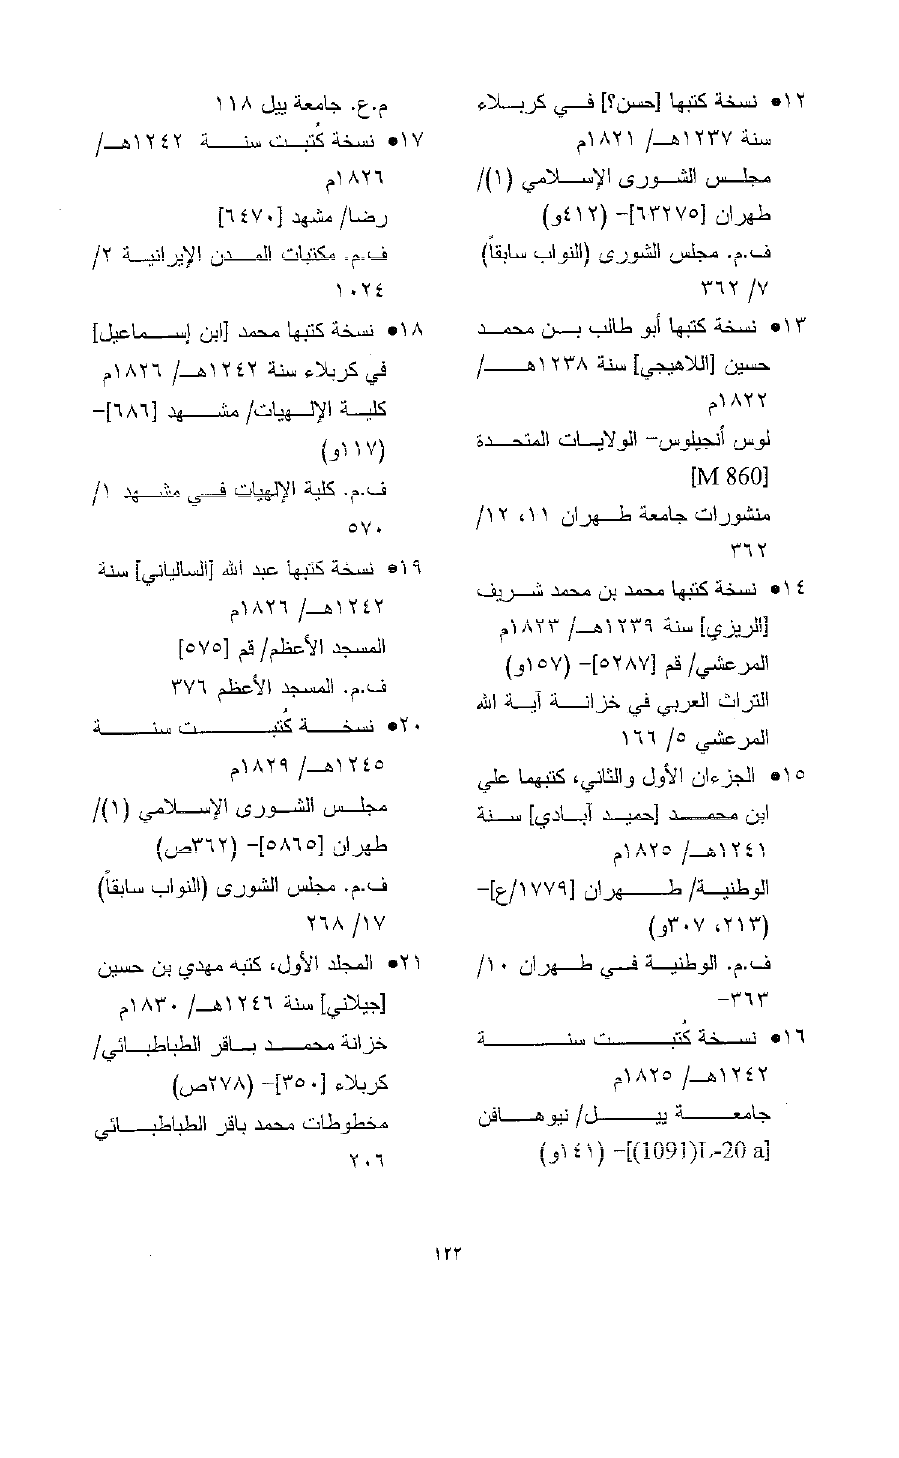 ١٢● نسخة كتبها [حسن؟] في كربلاء
سنة ١٢٣٧هـ/ ١٨٢١م
مجلس الشورى الإسلامي (١)/
طهران [٦٣٢٧٥]- (٤١٢و)
ف.م. مجلس الشورى (النواب سابقاً)
٧/ ٣٦٢
١٣● نسخة كتبها أبو طالب بن محمد
حسين [اللاهيجي] سنة ١٢٣٨هـ/
١٨٢٢م
لوس أنجيلوس- الولايات المتحدة
[M 860]
منشورات جامعة طهران ١١، ١٢/
٣٦٢
١٤● نسخة كتبها محمد بن محمد شريف
[الريزي] سنة ١٢٣٩هـ/ ١٨٢٣م
المرعشي/ قم [٥٢٨٧]- (١٥٧و)
التراث العربي في خزانة آية الله
المرعشي ٥/ ١٦٦
١٥● الجزءان الأول والثاني، كتبهما علي
ابن محمد [حميد آبادي] سنة
١٢٤١هـ/ ١٨٢٥م
الوطنية/ طهران [١٧٧٩/ع]-
(٢١٣، ٣٠٧و)
ف.م. الوطنية في طهران ١٠/
٣٦٣-
١٦● نسخة كُتبت سنة
١٢٤٢هـ/ ١٨٢٥م
جامعة ييل/ نيوهافن
[L-20 a(1091)]- (١٤١و)
م.ع. جامعة ييل ١١٨
١٧● نسخة كُتبت سنة ١٢٤٢هـ/
١٨٢٦م
رضا/ مشهد [٦٤٧٠]
ف.م. مكتبات المدن الإيرانية ٢/
١٠٢٤
١٨● نسخة كتبها محمد [ابن إسماعيل]
في كربلاء سنة ١٢٤٢هـ/ ١٨٢٦م
كلية الإلهيات/ مشهد [٦٨٦]-
(١١٧و)
ف.م. كلية الإلهيات في مشهد ١/
٥٧٠
١٩● نسخة كتبها عبد الله [السالياني] سنة
١٢٤٢هـ/ ١٨٢٦م
المسجد الأعظم/ قم [٥٧٥]
ف.م. المسجد الأعظم ٣٧٦
٢٠● نسخة كُتبت سنة
١٢٤٥هـ/ ١٨٢٩م
مجلس الشورى الإسلامي (١)/
طهران [٥٨٦٥]- (٣٦٢ص)
ف.م. مجلس الشورى (النواب سابقاً)
١٧/ ٢٦٨
٢١● المجلد الأول، كتبه مهدي بن حسين
[جيلاني] سنة ١٢٤٦هـ/ ١٨٣٠م
خزانة محمد باقر الطباطبائي/
كربلاء [٣٥٠]- (٢٧٨ص)
مخطوطات محمد باقر الطباطبائي
٢٠٦
١٢٢